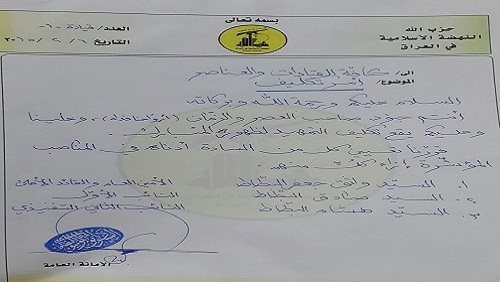 بسمه تعالى
حزب الله
النهضة الاسلامية
في العراق
العدد/ قيادة/٦٠
التاريخ ٦ / ٢ / ٢٠١٥
الى/ كافة القيادات والعناصر
الموضوع/ أمر تكليف
السلام عليكم ورحمة الله وبركاته
أنتم جنود صاحب العصر والزمان ، وعلينا
وعليكم يقع تكليف التمهيد للظهور
قررنا تعيين كل من السادة أدناه في المناصب
المؤشرة إزاء كل منهم
١. السيد واثق جعفر البطاط الأمين العام والقائد الأعلى
٢. السيد صادق البطاط النائب الأول
٣. السيد هشام البطاط النائب الثاني التنفيذي
الامانة العامة